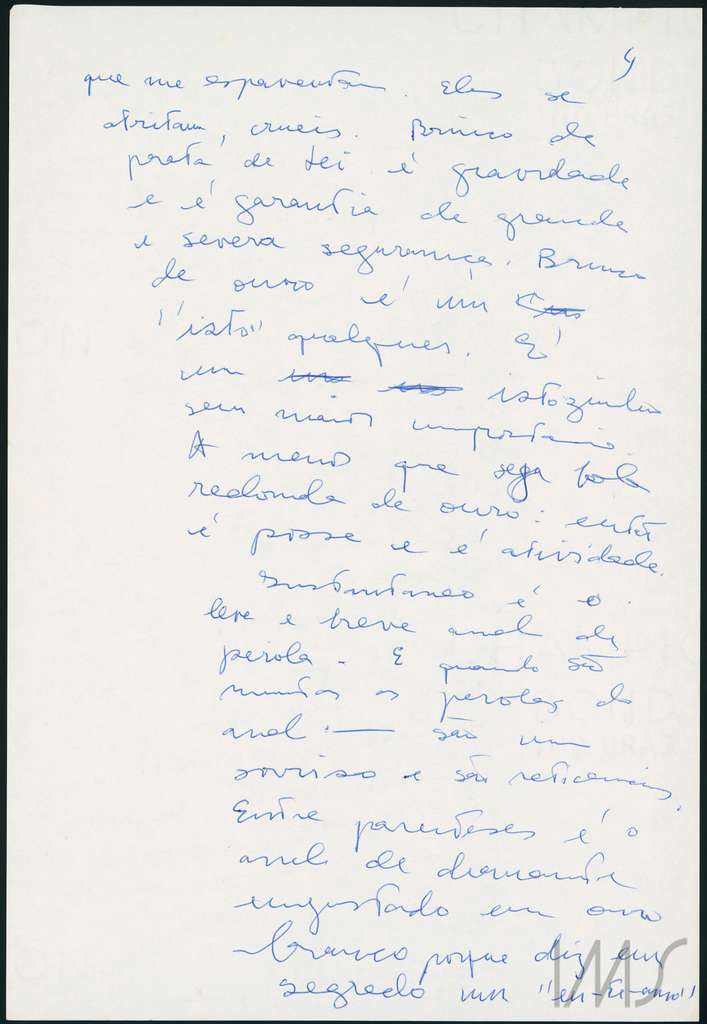 4
que me espaventam. Eles se
atritam, cruéis. Brinco de
prata de lei é gravidade
e é garantia de grande
e severa segurança. Brinco
de ouro é um
"isto" qualquer. É
um istozinho
sem maior importância.
A menos que seja bola
redonda de ouro: então
é posse e é atividade.
Instantaneo é o
leve e breve anel de
perola. E quando são
muitas as perolas do
anel — são um
sorriso e são reticencias.
Entre parenteses é o
anel de diamante
engastado em ouro
branco porque diz em
segredo um "eu-te-amo"
IMS